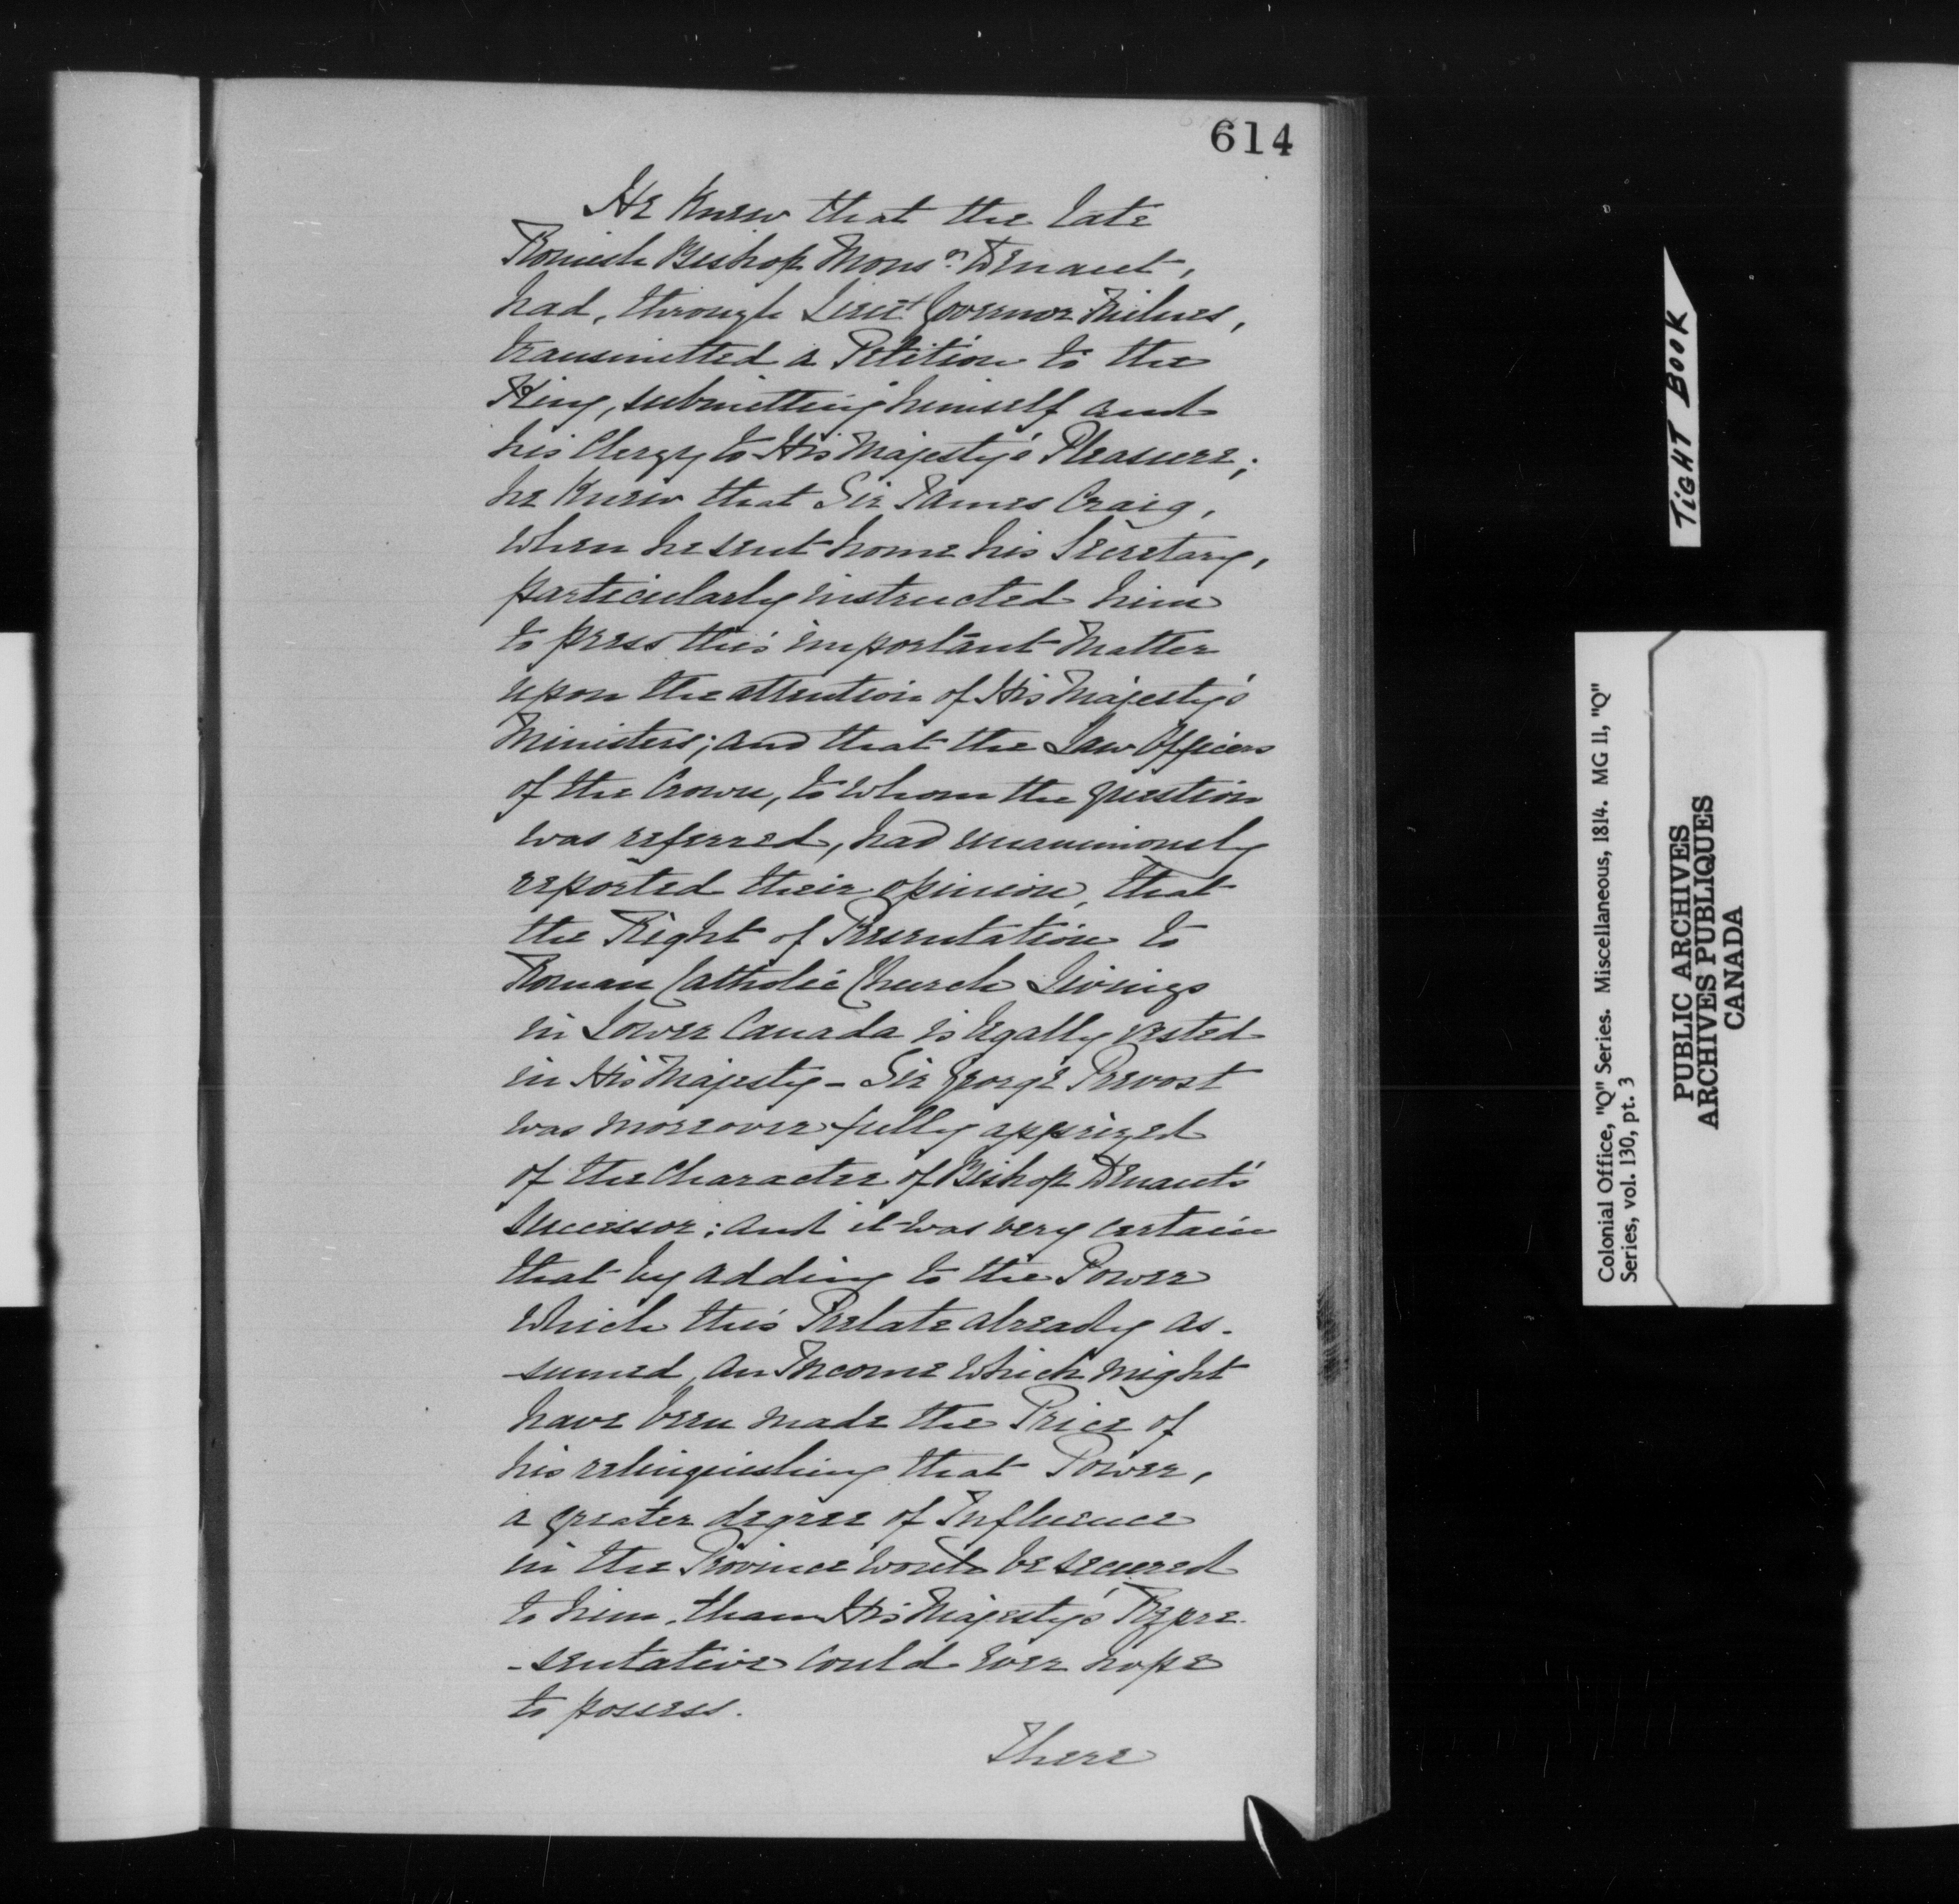 614
He Knew that the late
Romish Bishop Monsr. Denaut,
had, through Lieut Governor Milnes,
transmitted a Petition to the
King, submitting himself and
his Clergy to His Majesty's Pleasure;
he Knew that Sir James Craig,
when he sent home his Secretary,
particularly instructed him
to press this important Matter
upon the attention of His Majesty's
Ministers; and that the Law Officers
of the Crown, to whom the question
was referred, had unanimously
reported their opinion, that
the Right of Presentation to
Roman Catholic Church Livings
in Lower Canada is legally vested
in His Majesty - Sir George Prevost
was moreover fully apprized
of the Character of Bishop Denaut's
Successor; and it was very certain
that by adding to the Power
which this Prelate already as-
-sumed, an Income which might
have been made the Price of
his relinquishing that Power,
a greater degree of Influence
in the Province would be secured
to him, than His Majesty's Repre-
-sentative could ever hope
to possess.
There
TiGHT BOOK
Colonial Office, "Q" Series. Miscellaneous, 1814. MG 11, "Q"
Series, vol. 130, pt. 3
PUBLIC ARCHIVES
ARCHIVES PUBLIQUES
CANADA